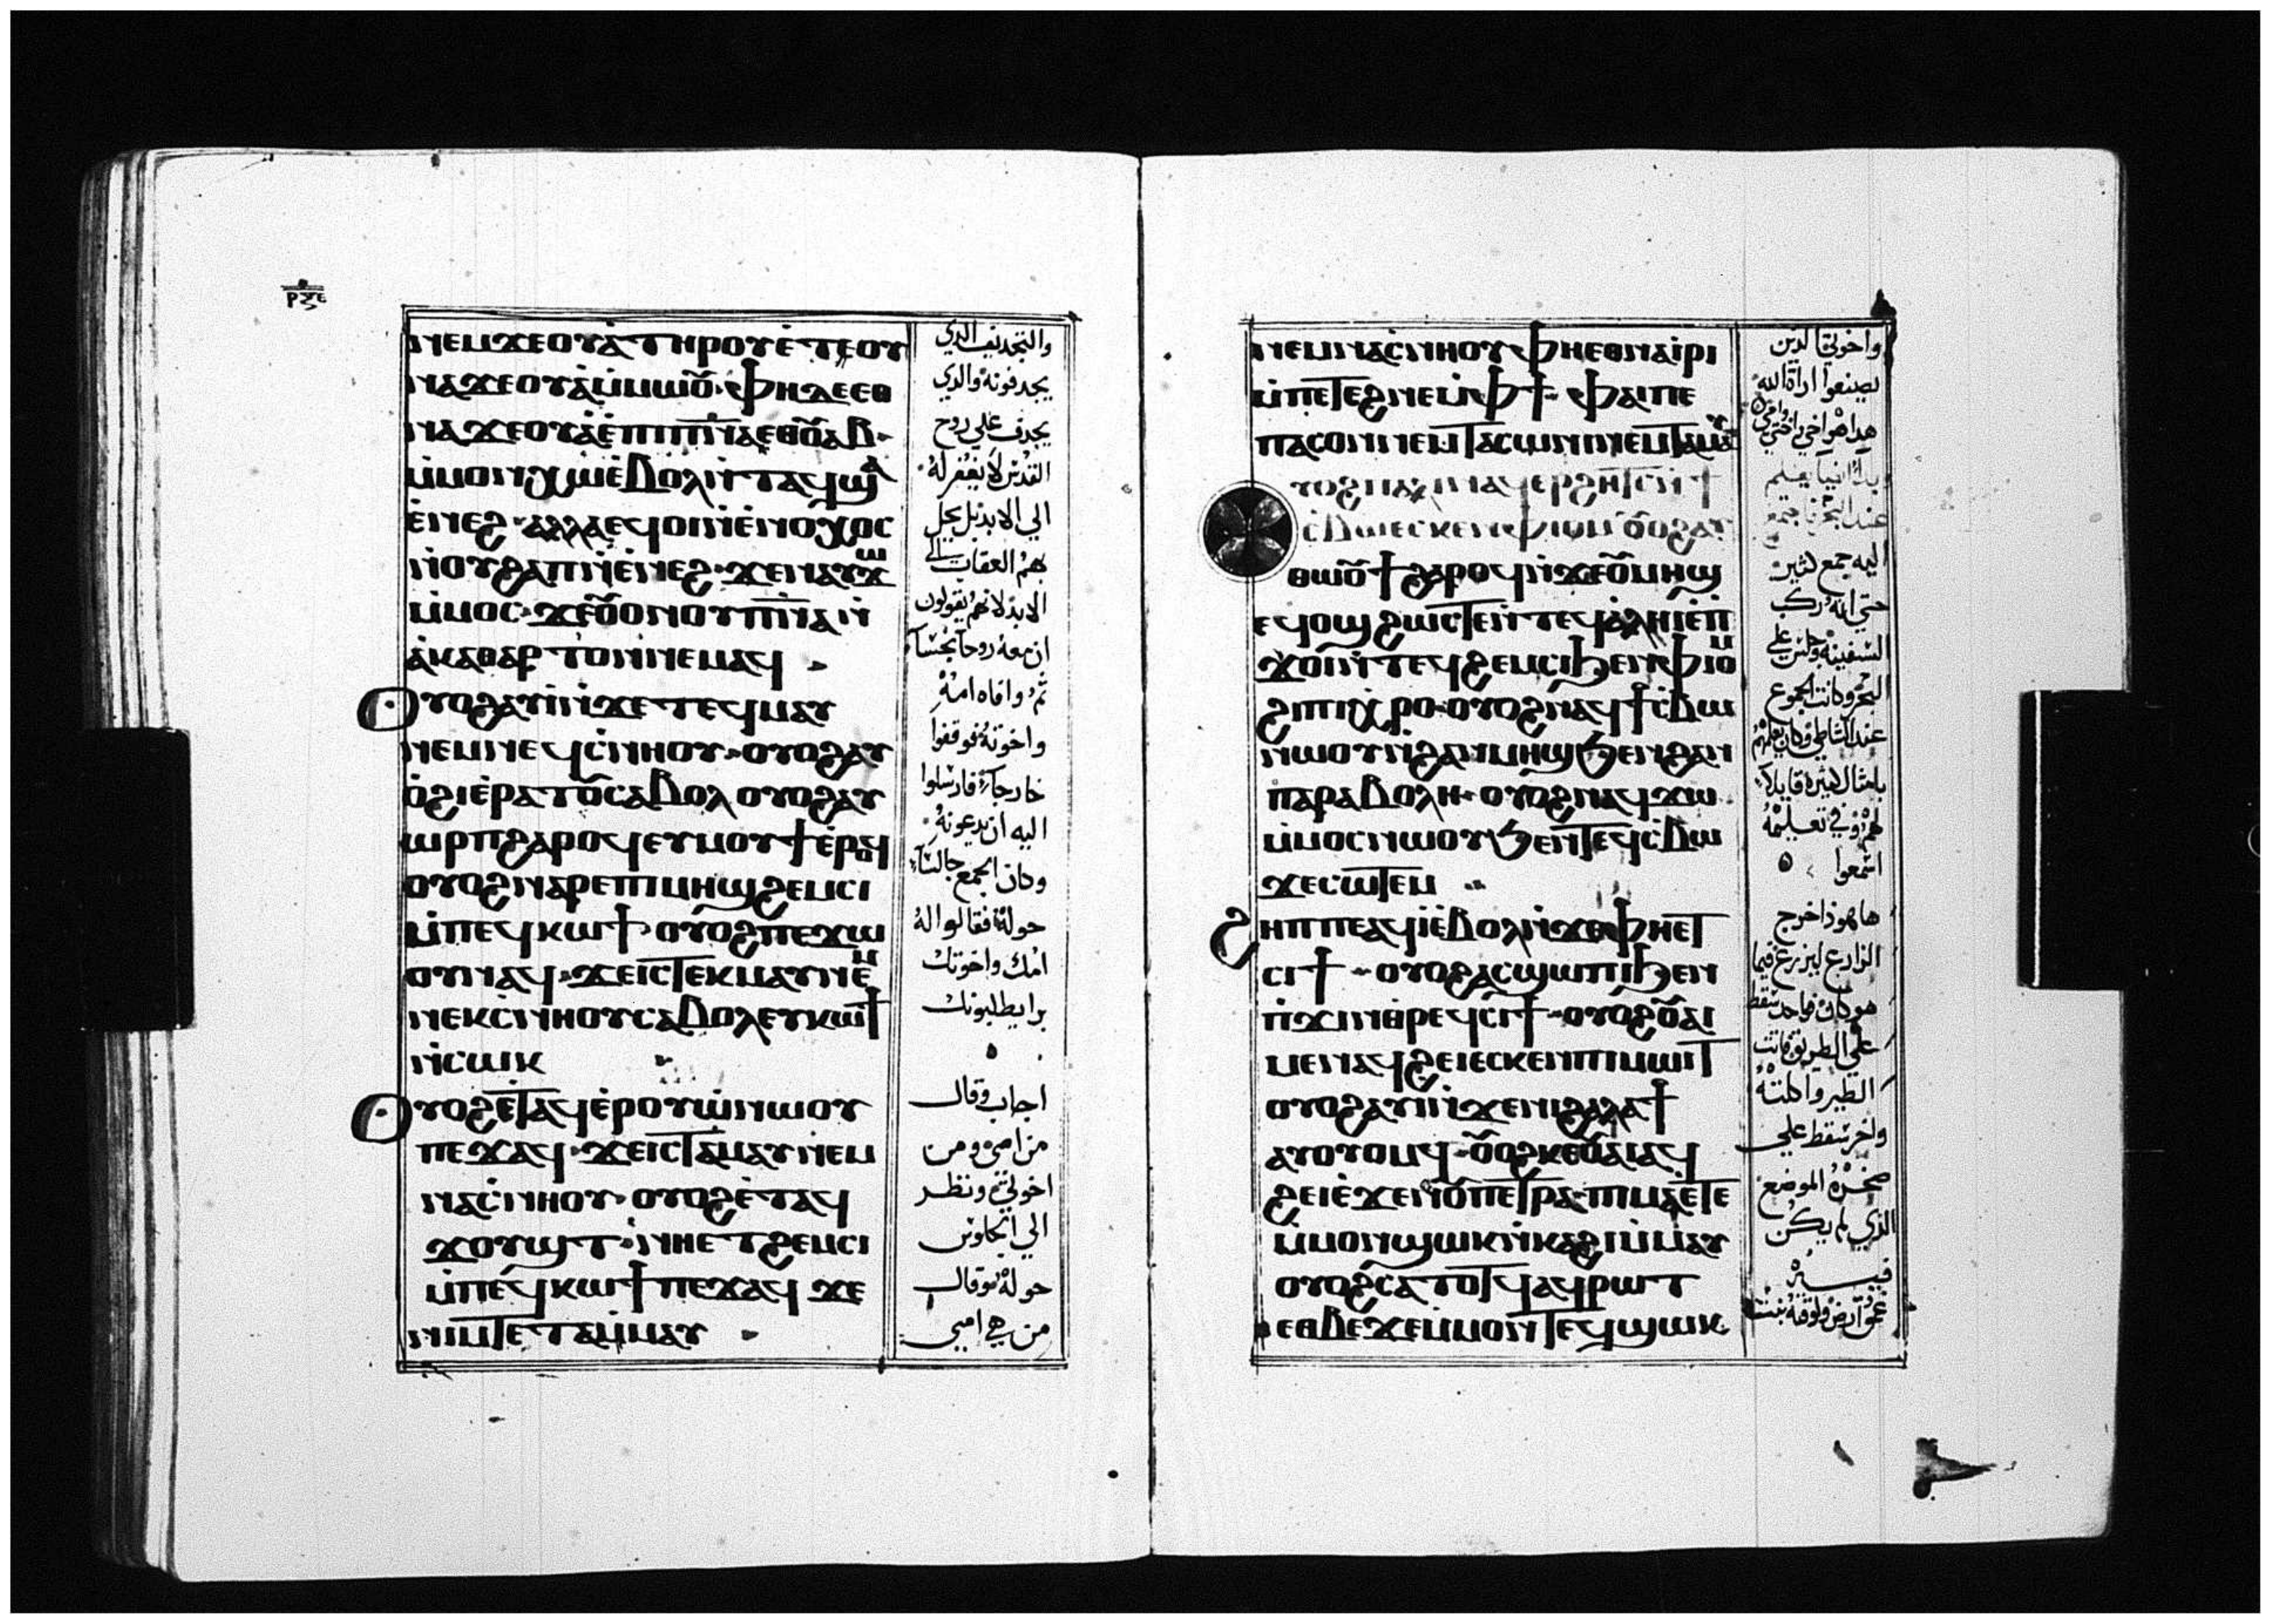 ⲣⲝⲉ
ⲛⲉⲙϫⲉⲟⲩⲁ̀ⲧⲏⲣⲟⲩⲉ̀ⲧⲉⲟⲩ
ⲛⲁϫⲉⲟⲩⲁ̀ⲙ̀ⲙⲱⲟ̅· ⲫⲏⲇⲉⲉⲑ
ⲛⲁϫⲉⲟⲩⲁ̀ⲉ̀ⲡⲓⲡ̅ⲛ̅ⲁⲉⲑⲟ̅ⲩⲁⲃ·
ⲙ̀ⲙⲟⲛⲭⲱⲉ̀ⲃⲟⲗⲛ̀ⲧⲁϥϣⲁ
ⲉ̀ⲛⲉϩ· ⲁⲗⲗⲁⲉϥⲟⲓⲛ̀ⲉ̀ⲛⲟⲭⲟⲥ
ⲛ̀ⲟⲩϩⲁⲡⲛ̀ⲉ̀ⲛⲉϩ· ϫⲉⲛⲁⲩϫⲱ
ⲙ̀ⲙⲟⲥ· ϫⲉⲟ̅ⲟⲛⲟⲩⲡ̅ⲛ̅ⲁⲛ̀
ⲁ̀ⲕⲁⲑⲁⲣⲧⲟⲛⲛⲉⲙⲁϥ
ⲟⲩⲟϩⲁⲩⲓ̀ⲛ̀ϫⲉⲧⲉϥⲙⲁⲩ
ⲛⲉⲙⲛⲉϥⲥ̀ⲛⲏⲟⲩ· ⲟⲩⲟϩⲁⲩ
ⲟ̀ϩⲓⲉ̀ⲣⲁⲧⲟ̅ⲥⲁⲃⲟⲗ ⲟⲩⲟϩⲁⲩ
ⲱⲣⲡϩⲁⲣⲟϥⲉⲩⲙⲟⲩϯⲉ̀ⲣⲟϥ
ⲟⲩⲟϩⲛⲁⲣⲉⲡⲓⲙⲏϣϩⲉⲙⲥⲓ
ⲙ̀ⲡⲉϥⲕⲱϯ· ⲟⲩⲟϩⲡⲉϫⲱ
ⲟⲩⲛⲁϥ· ϫⲉⲓⲥⲧⲉⲕⲙⲁⲩⲛⲉⲙ
ⲛⲉⲕⲥ̀ⲛⲏⲟⲩⲥⲁⲃⲟⲗⲉⲩⲕⲱϯ
ⲛ̀ⲥⲱⲕ
ⲟⲩⲟϩⲉ̀ⲧⲁϥⲉ̀ⲣⲟⲩⲱ̀ⲛⲱⲟⲩ
ⲡⲉϫⲁϥ· ϫⲉⲓⲥⲧⲁⲙⲁⲩⲛⲉⲙ
ⲛⲁⲥ̀ⲛⲏⲟⲩ· ⲟⲩⲟϩⲉ̀ⲧⲁϥ
ϫⲟⲩϣⲧ· ⲛ̀ⲛⲏⲉⲧϩⲉⲙⲥⲓ
ⲙ̀ⲡⲉϥⲕⲱϯ ⲡⲉϫⲁϥ ϫⲉ
ⲛⲓⲙⲧⲉ ⲧⲁⲙ̀ⲙⲁⲩ
والتجديف الذي
يجدفونه والذي
يجدف علي روح
القدس لا يغفر له
الي الابد بل يحل
بهم العقاب الي
الابد لانهم يقولون
ان معه روحا نجسا
ثم وافاه امه
واخوته فوقفوا
خارجا فارسلوا
اليه ان يدعونه
وكان الجمع جالسا
حوله فقالوا له
امك واخوتك
برا يطلبونك
اجاب وقال
من امي ومن
اخوتي ونظر
الي الجلوس
حوله وقال
من هي امي
ⲛⲉⲙⲛⲁⲥ̀ⲛⲏⲟⲩ ⲫⲏⲉⲑⲛⲁⲓ̀ⲣⲓ
ⲙ̀ⲡⲉⲧⲉϩⲛⲉⲙ̀ⲫϯ· ⲫⲁⲓⲡⲉ
ⲡⲁⲥⲟⲛⲛⲉⲙⲧⲁⲥⲱⲛⲓⲛⲉⲙⲧⲁⲙⲁⲩ
ⲟⲩⲟϩⲡⲁⲗⲓⲛⲁϥⲉⲣϩⲏⲧⲥⲛ̀ϯ
ⲥ̀ⲃⲱⲉⲥⲕⲉⲛⲫⲓⲟⲙ ⲟ̅ⲟϩⲁⲩ
ⲑⲱⲟ̅ϯϩⲁⲣⲟϥⲛ̀ϫⲉⲟ̅ⲙⲏϣ
ⲉϥⲟϣϩⲱⲥⲧⲉⲛ̀ⲧⲉϥⲁ̀ⲗⲏⲓⲉ̀ⲡ
ϫⲟⲓⲛ̀ⲧⲉϥϩⲉⲙⲥⲓϧⲉⲛⲫⲓⲟⲙ
ϩⲓⲡⲓⲭⲣⲟ· ⲟⲩⲟϩⲛⲁϥϯⲥ̀ⲃⲱ
ⲛⲱⲟⲩⲛ̀ϩⲁⲛⲙⲏϣϧⲉⲛϩⲁⲛ
ⲡⲁⲣⲁⲃⲟⲗⲏ· ⲟⲩⲟϩⲛⲁϥϫⲱ
ⲙ̀ⲙⲟⲥⲛⲱⲟⲩϧⲉⲛⲧⲉϥⲥ̀ⲃⲱ
ϫⲉⲥⲱⲧⲉⲙ
ϩⲏⲡⲡⲉⲁϥⲓ̀ⲉ̀ⲃⲟⲗⲛ̀ϫⲉⲫⲏⲉⲧ
ⲥⲓϯ· ⲟⲩⲟϩⲁⲥϣⲱⲡⲓϧⲉⲛ
ⲡ̀ϫⲓⲛⲑ̀ⲣⲉϥⲥⲓϯ· ⲟⲩⲟϩⲟ̅ⲁⲓ
ⲙⲉⲛⲁϥϩⲉⲓⲉⲥⲕⲉⲛⲡⲓⲙⲱⲓⲧ
ⲟⲩⲟϩⲁⲩⲓ̀ⲛ̀ϫⲉⲛⲓϩⲁⲗⲁϯ
ⲁⲩⲟⲩⲟⲙϥ· ⲟ̅ⲟϩⲕⲉⲟ̅ⲁⲓⲁϥ
ϩⲉⲓⲉ̀ϫⲉⲛⲟ̅ⲡⲉⲧⲣⲁ· ⲡⲓⲙⲁⲉ̀ⲧⲉ
ⲙ̀ⲙⲟⲛϣⲱⲕⲛ̀ⲕⲁϩⲓⲙ̀ⲙⲁⲩ
ⲟⲩⲟϩⲥⲁⲧⲟⲧϥⲁϥⲣⲱⲧ
ⲉⲑⲃⲉϫⲉⲙ̀ⲙⲟⲛⲧⲉϥϣⲱⲕ
واخوتي الذين
يصنعوا ارادة الله
هذا هو اخي واختي وامي
بدا ايضا يعلم
عند البحر فاجتمع
اليه جمع كثير
حتي انه ركب
السفينه وجلس علي
البحر وكانت الجموع
عند الشاطي وكان يعلمهم
بامثال كثيره قايلا
لهم في تعليمه
اسمعوا
ها هوذا خرج
الزارع ليزرع فيما
هو كان فواحد سقط
علي الطريق فاتت
الطير واكلته
واخر سقط علي
صخره الموضع
الذي لم يكن
فيه
عمق ارض ولوقته نبت